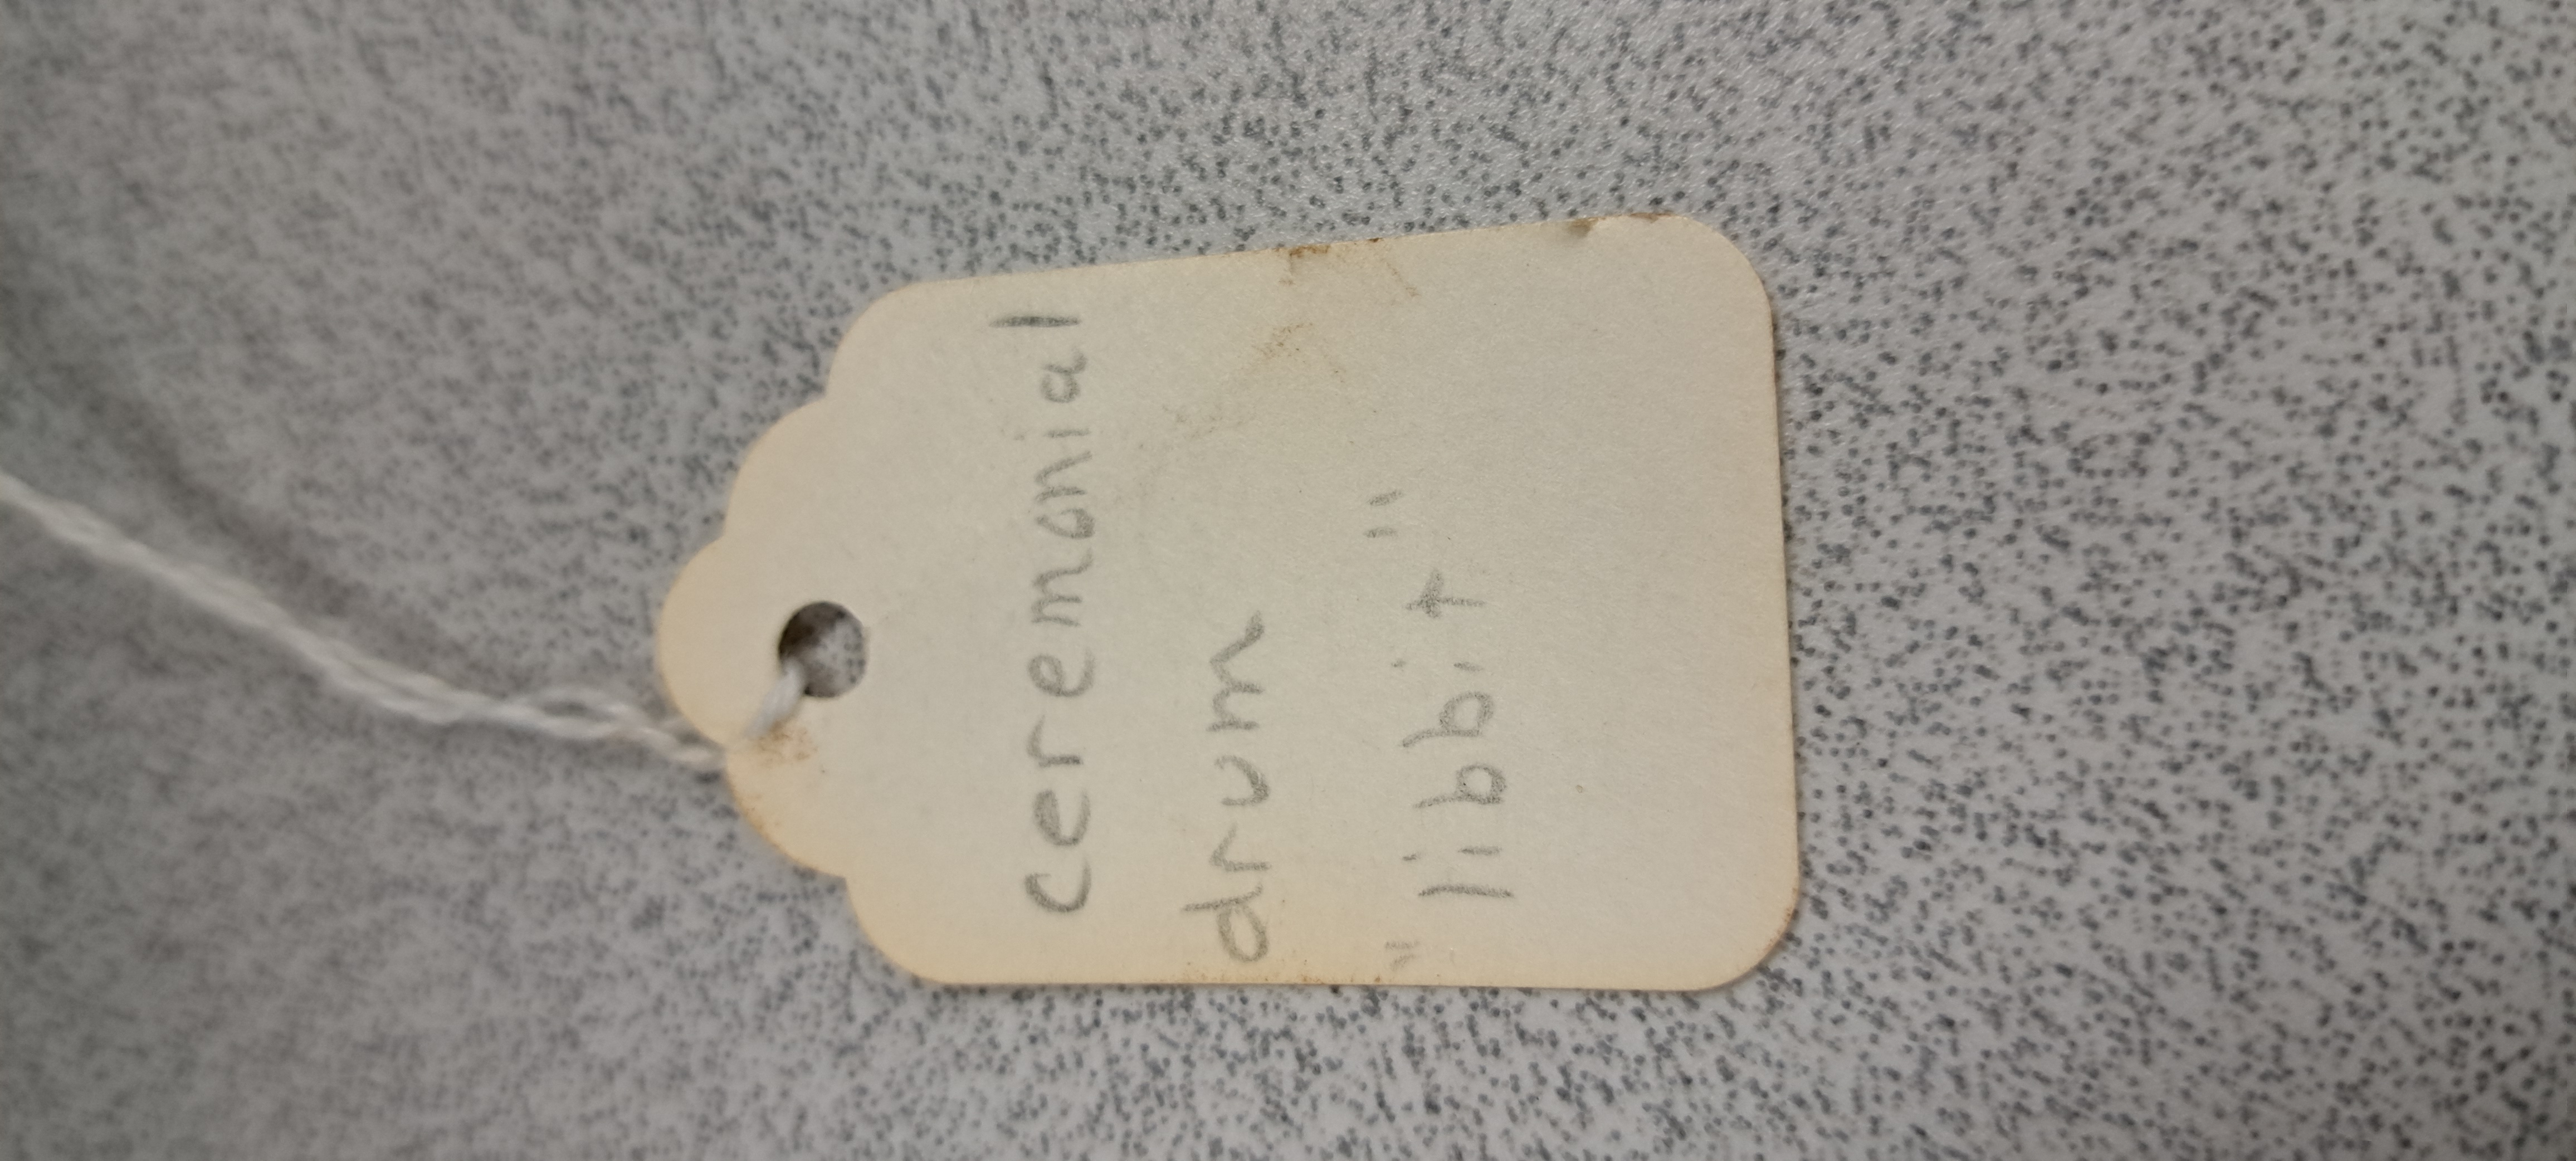 ceremonial
drum
"libbit"